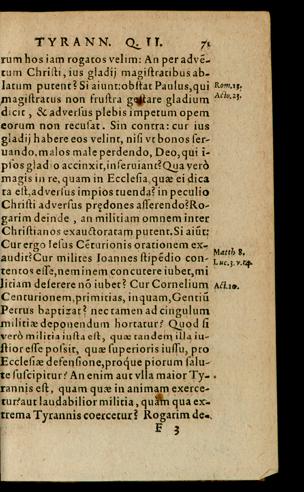 TYRANN. Q. II. 71
rum hos iam rogatos velim: An per advẽ-
tum Christi, ius gladij magistratibus ab-
latum putent? Si aiunt: obstat Paulus, qui
magistratus non frustra gestare gladium
dicit, & adversus plebis impetum opem
eorum non recusat. Sin contra: cur ius
gladij habere eos velint, nisi vt bonos ser-
uando, malos male perdendo, Deo, qui i-
psos gladio accinxit, inseruiant? Qua verò
magis in re, quam in Ecclesia, quæ ei dica
ta est, adversus impios tuenda? in peculio
Christi adversus prędones asserendo? Ro-
garim deinde, an militiam omnem inter
Christianos exauctoratam putent. Si aiũt:
Cur ergo Iesus Cẽturionis orationem ex-
audit? Cur milites Ioannes stipẽdio con-
tentos esse, neminem concutere iubet, mi
litiam deserere nõ iubet? Cur Cornelium
Centurionem, primitias, inquam, Gentiũ
Petrus baptizat? nec tamen ad cingulum
militiæ deponendum hortatur? Quod si
verò militia iusta est, quæ tandem illa iu-
stior esse possit, quæ superioris iussu, pro
Ecclesiæ defensione, proque piorum salu-
te suscipitur? An enim aut vlla maior Ty-
rannis est, quam quæ in animam exerce-
tur? aut laudabilior militia, quam qua ex-
trema Tyrannis coercetur? Rogarim de-
F 3
Rom. 13.
Acto. 23.
Matth 8.
Luc. 3. v. 14.
Act. 10.